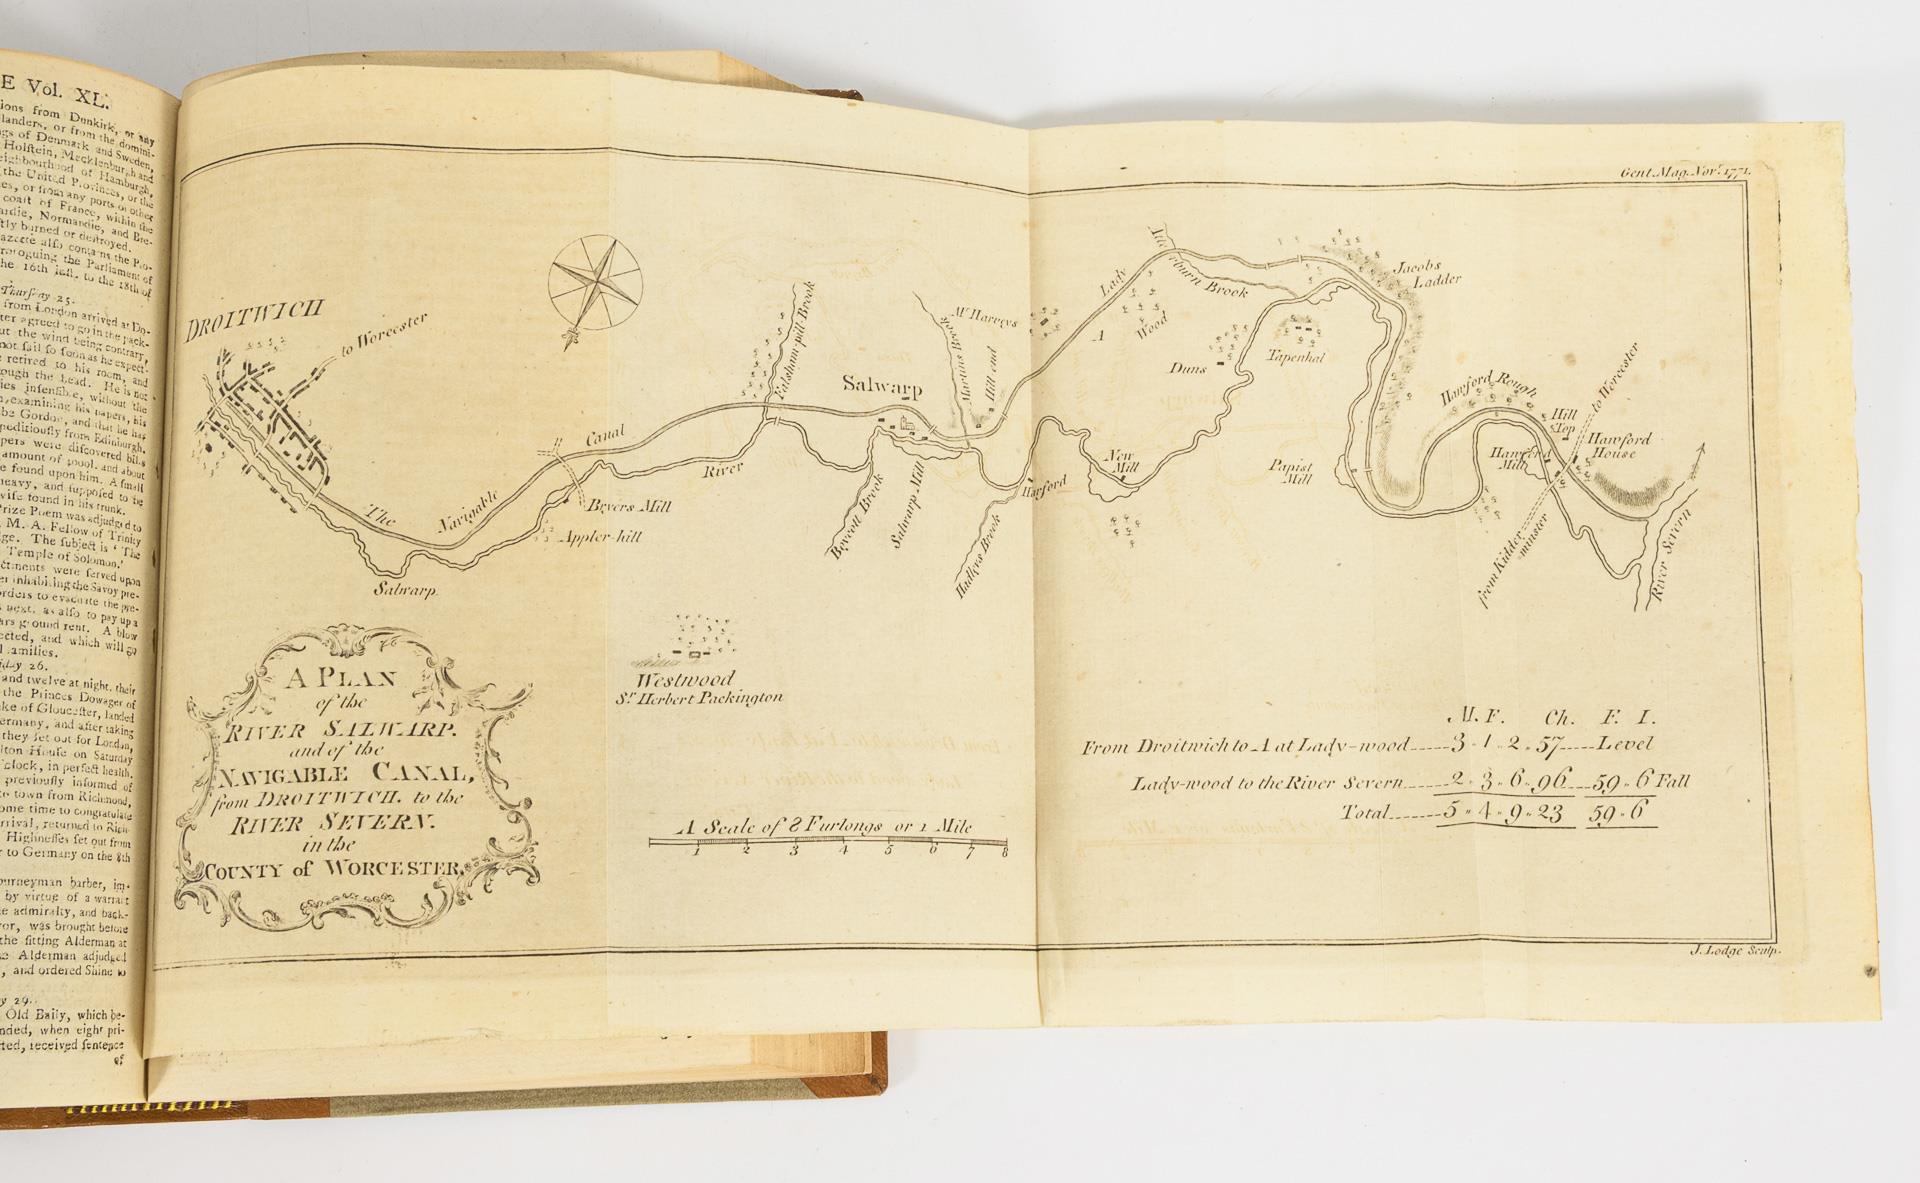 E Vol. XL.
ions from Dunkirk, or any
landers, or from the domini-
gs of Denmark and Sweden,
Holſtein, Mecklenburgh and
eighbourhood of Hamburgh,
the United Provinces, or the
es, or from any ports or other
coaſt of France, within the
ardie, Normandie, and Bre-
tly burned or deſtroyed.
azette alſo contains the Pro-
roroguing the Parliament of
he 16th inſt. to the 18th of
Thurſday 25.
from London arrived at Do-
ter agreed to go in the pack-
ut the wind being contrary,
not ſail ſo ſoon as he expect-
retired to his room, and
rough the head. He is not
ies inſenſible, without the
n examining his papers, his
be Gordon, and that he has
peditiouſly from Edinburgh.
pers were diſcovered bills
amount of 500l. and about
e found upon him. A ſmall
heavy, and ſuppoſed to be
wiſe found in his trunk.
rize Poem was adjudged to
M. A. Fellow of Trinity
ge. The ſubject is 'The
Temple of Solomon.'
ctments were ſerved upon
er inhabiting the Savoy pre-
orders to evacuate the pre-
next, as alſo to pay up a
ars ground rent. A blow
ected, and which will go
l families.
iday 26.
and twelve at night, their
the Princes Dowager of
ke of Glouceſter, landed
ermany, and after taking
they ſet out for London,
lton Houſe on Saturday
clock, in perfect health.
previouſly informed of
to town from Richmond,
ome time to congratulate
rrival, returned to Rich-
Highneſſes ſet out from
r to Germany on the 8th
ourneyman barber, im-
by virtue of a warrant
e admiralty, and back-
or, was brought before
the ſitting Alderman at
e Alderman adjudged
, and ordered Shine to
y 29.
Old Baily, which be-
nded, when eight pri-
ted, received ſentence
of
Gent. Mag. Nov.r 1771.
DROITWICH
to Worcester
Falsham-pill-Brook
Salwarp
Martins Brook
Mr Harveys
Hill end
Lady
A
Wood
Burn Brook
Jacobs
Ladder
Duns
Tapenhal
Hawford Rough
Hill
Top
to Worcester
Hawford
House
Hawford
Mill
Papist
Mill
New
Mill
Harford
Canal
Navigable
The
River
Salwarp
Bryers Mill
Appler-hill
Brycott Brook
Salwarp Mill
Hadleys Brook
from Kidder-
minster
River Severn
Westwood
Sr Herbert Packington
A PLAN
of the
RIVER SALWARP.
and of the
NAVIGABLE CANAL,
from DROITWICH. to the
RIVER SEVERN.
in the
COUNTY of WORCESTER.
A Scale of 8 Furlongs or 1 Mile
1 2 3 4 5 6 7 8
M. F. Ch. F. I.
From Droitwich to A at Lady-wood 3 " 1 " 2 " 57 Level
Lady-wood to the River Severn 2 " 3 " 6 " 96 59 " 6 Fall
Total 5 " 4 " 9 " 23 59 " 6
J. Lodge Sculp.